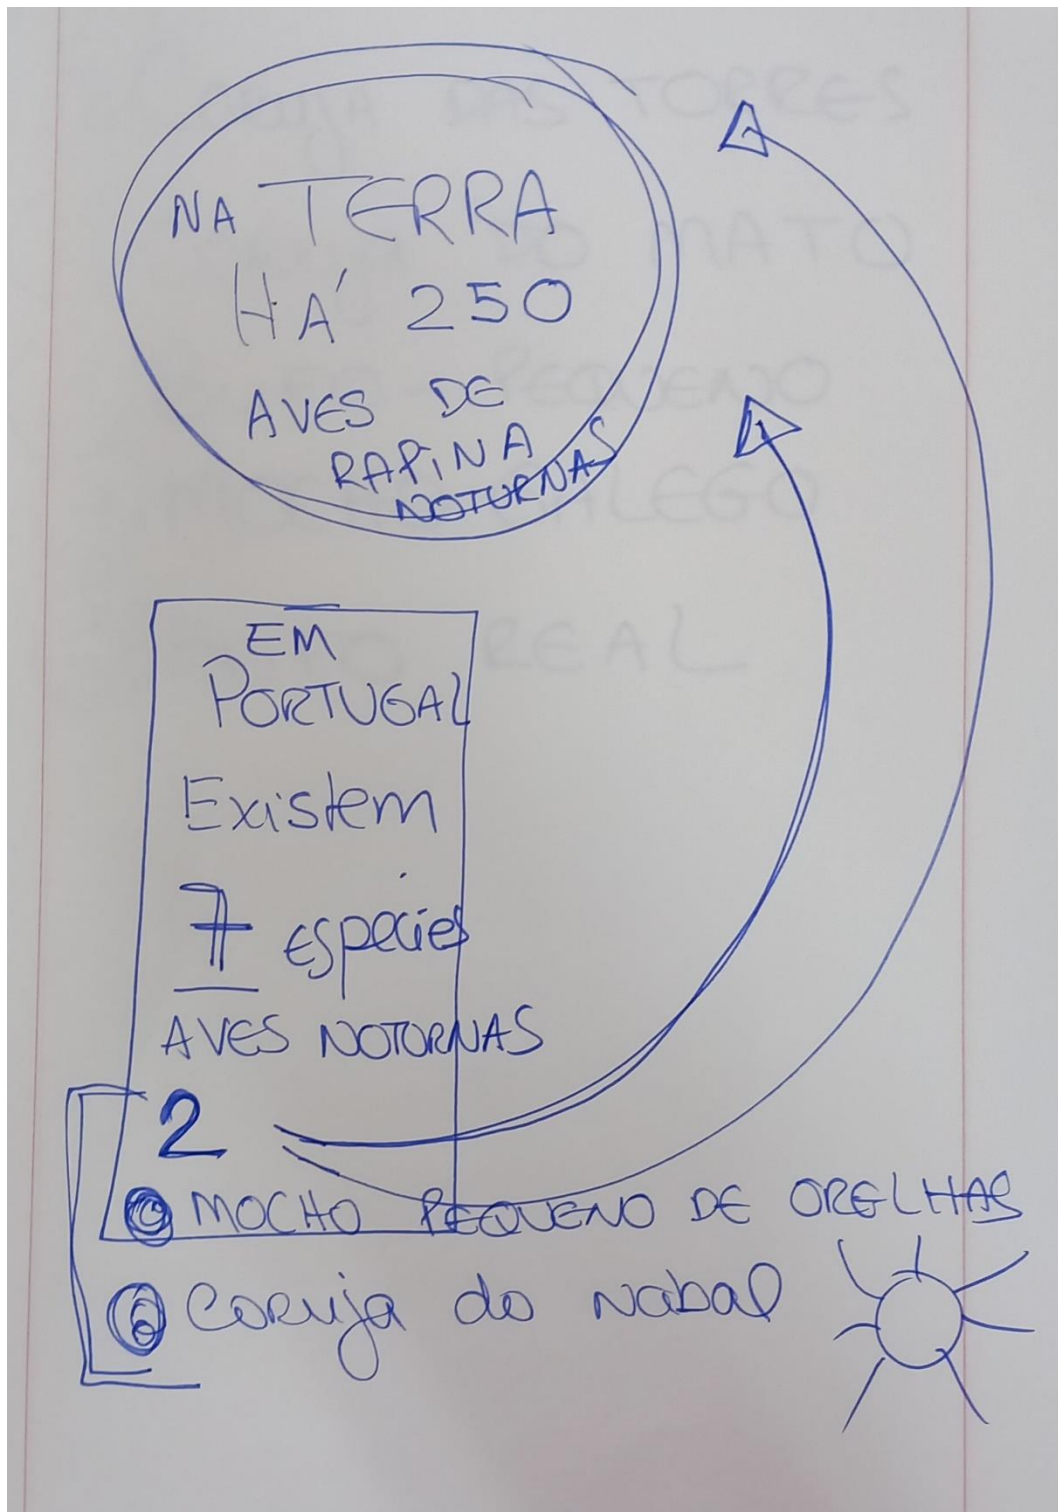 NA TERRA
HÁ 250
AVES DE
RAPINA
NOTURNAS
EM
PORTUGAL
Existem
7 espécies
AVES NOTURNAS
2
MOCHO PEQUENO DE ORELHAS
Coruja do Nabal
DAS TORRES
DO MATO
PEQUENO
REAL